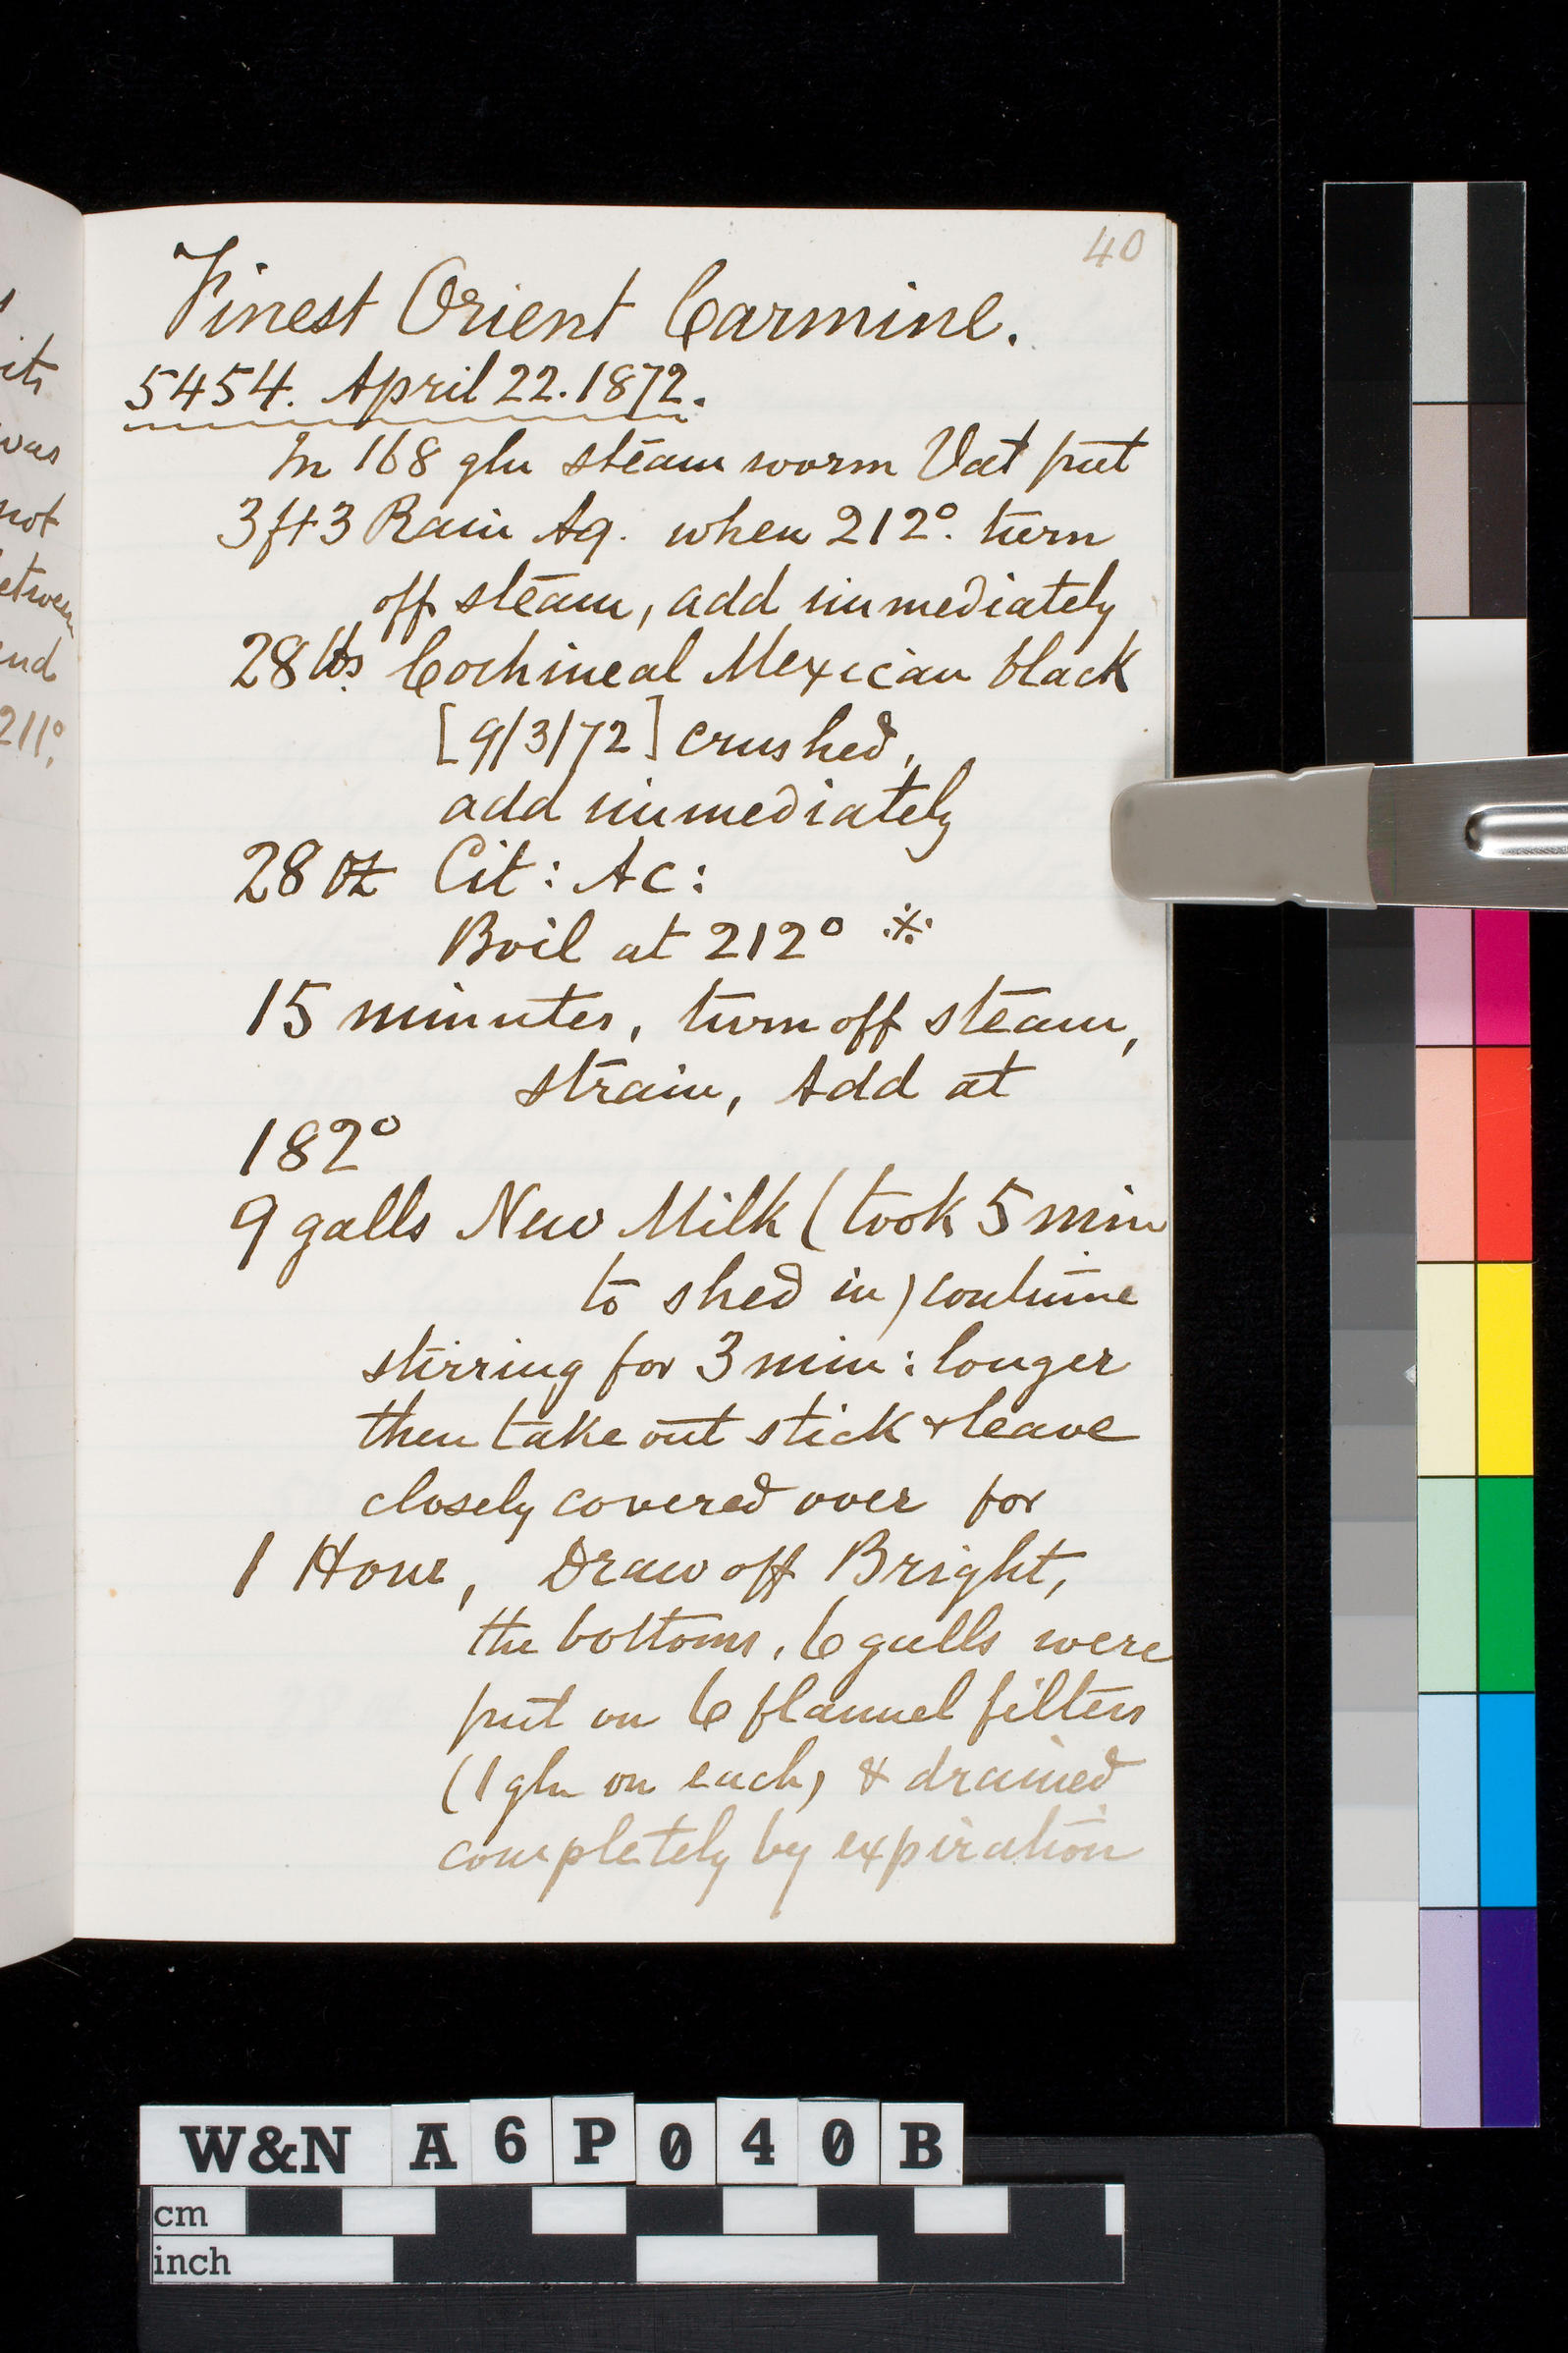 40
Finest Orient Carmine.
5454. April 22. 1872.
In 168 gln steam worm Vat put
3ft3 Rain Aq. when 212°. turn
off steam, add immediately
28 lbs. Cochineal Mexican black
[9/3/72] crushed,
add immediately
28 oz Cit: Ac:
Boil at 212° ※
15 minutes, turn off steam,
strain, Add at
182°
9 galls New Milk (took 5 min
to shed in) continue
stirring for 3 min: longer
then take out stick & leave
closely covered over for
1 Hour, Draw off Bright,
the bottoms, 6 galls were
put on 6 flannel filters
(1 gln on each) & drained
completely by expiration
its
was
not
between
end
211°,
W&N A6P040B
cm
inch